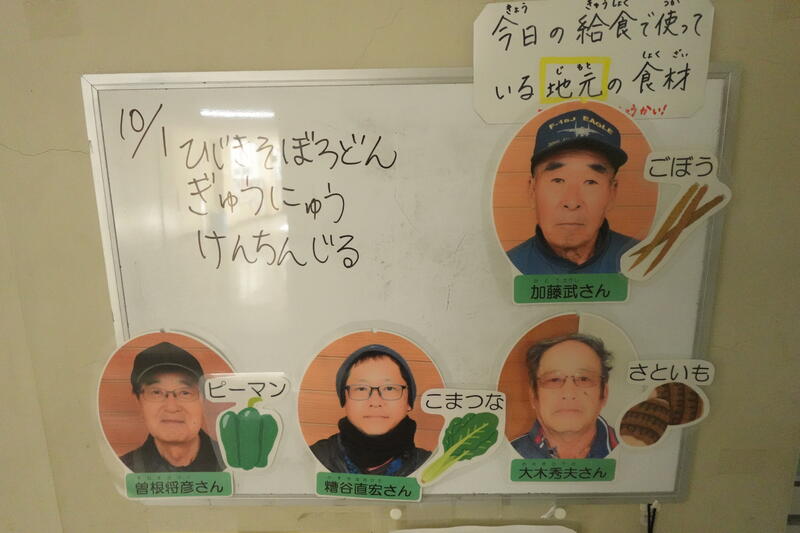 今日の給食で使って
いる地元の食材
しょうかい!
10/1
ひじきそぼろどん
ぎゅうにゅう
けんちんじる
F-15J EAGLE
ごぼう
加藤武さん
ピーマン
曽根将彦さん
こまつな
糟谷直宏さん
さといも
大木秀夫さん